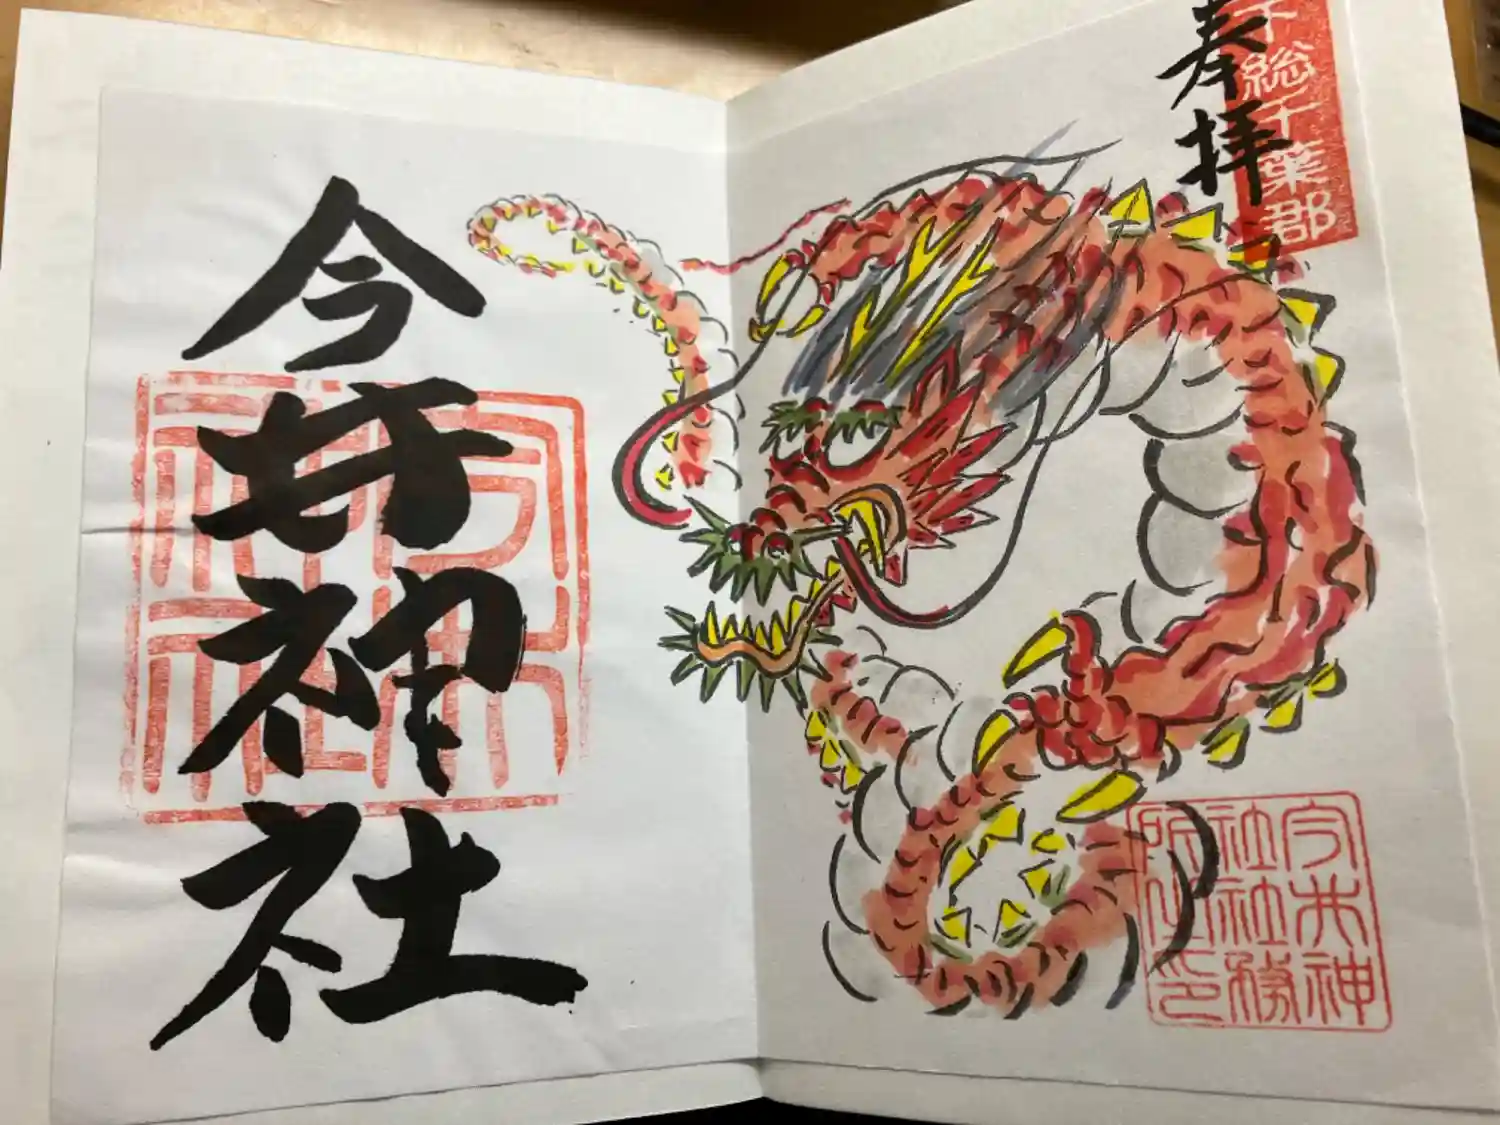 奉拝
下総千葉郡
今井神
社社務
所之印
今井神社
今井
神社